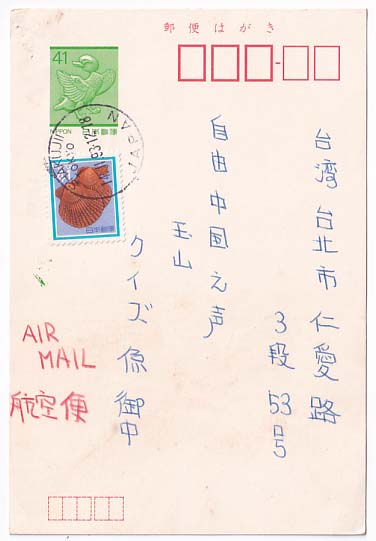 郵便はがき
41
NIPPON
JAPAN
TOKYO
日本郵便
台湾台北市仁愛路
3段53号
自由中国え声
玉山
クイズ係御中
AIR
MAIL
航空便